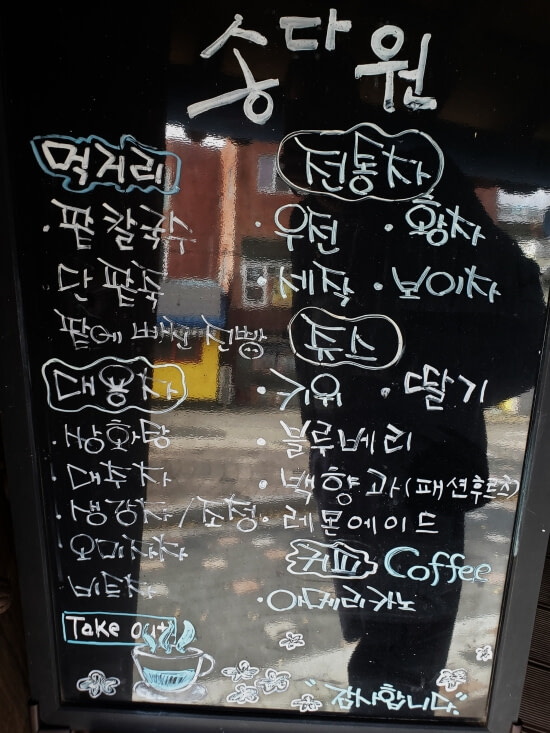 송다원
먹거리
· 팥칼국수
단팥죽
팥에 빠진 찐빵
대용차
· 쌍화탕
· 대추차
· 생강차/조청
· 오미자차
Take out
전통차
· 우전 · 황차
· 세작 · 보이차
쥬스
· 키위 · 딸기
· 블루베리
· 백향과(패션후르츠)
· 레몬에이드
커피 Coffee
· 아메리카노
"감사합니다"